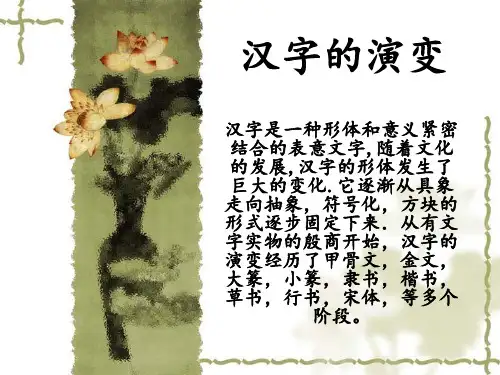 汉字的演变
汉字是一种形体和意义紧密
结合的表意文字,随着文化
的发展,汉字的形体发生了
巨大的变化.它逐渐从具象
走向抽象，符号化，方块的
形式逐步固定下来．从有文
字实物的殷商开始，汉字的
演变经历了甲骨文，金文，
大篆，小篆，隶书，楷书，
草书，行书，宋体，等多个
阶段。